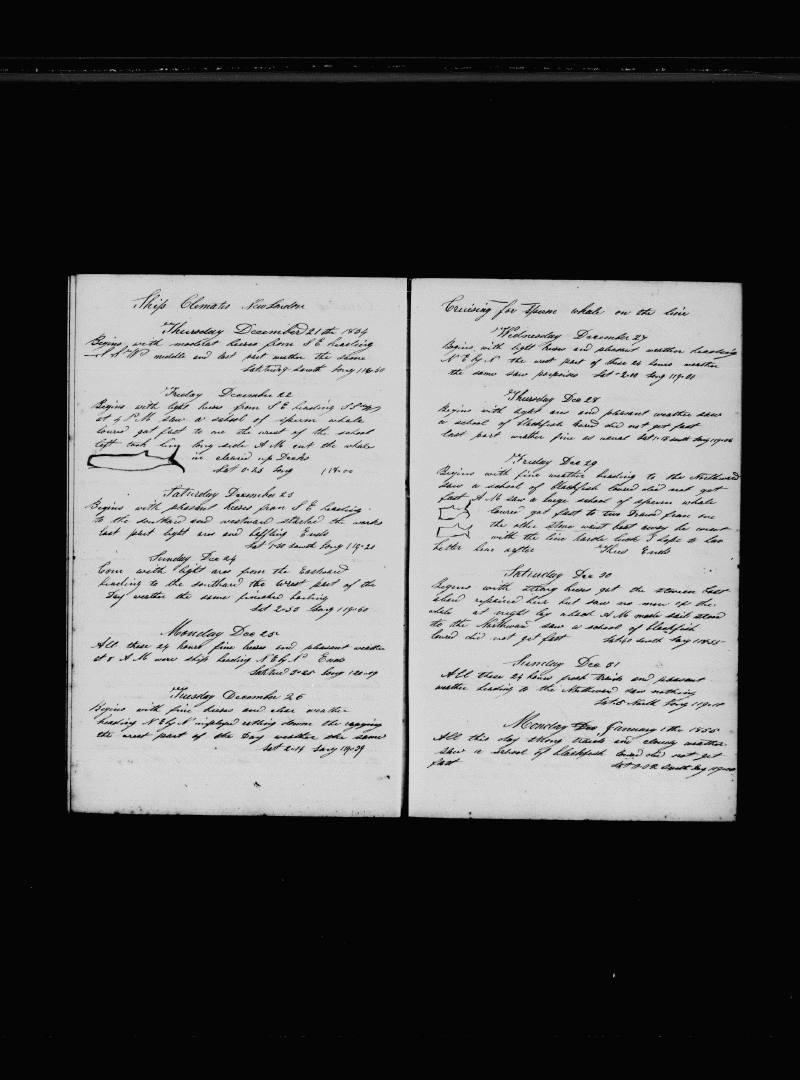 Ship Climates New London
Thursday December 21th 1854
Begins with modelat breses from S E heading
S S W middle and last part weather the same
Latitude South Long 118-50
Friday December 22
Begins with light breses from S E heading S S W
at 4 P M saw a school of sperm whale
lowred got fast to one the wrest of the school
left took him long side A M cut the whale
in cleared up Decks
Lat 0-25 Long 118-00
Saturday December 23
Begins with pleasent breses from S E heading
to the southard and westward started the works
Last part light ares and baffling Ends
Lat 1-30 South Long 119-20
Sunday Dec 24
Com with light ares from the Eastward
heading to the southard the wrest part of the
Day weather the same finished boiling
Lat 2-50 Long 119-60
Monday Dec 25
All these 24 hours fine breses and pleasant weather
at 8 A M wore ship heading N E by N Ends
Latitud 3-25 Long 120-09
Tuesday December 26
Begins with fine breses and clear weather
heading N E by N imployed setting downe the rigging
the wrest part of the Day weather the same
Lat 2-14 Long 119-39
Cruising for Sperm whale on the line
Wednesday December 27
Begins with light breses and pleasent weather heading
N E by N the wrest part of these 24 hours weather
the same saw porpoises Lat 2-00 Long 119-20
Thursday Dec 28
Begins with light ares and pleasant weather saw
a school of blackfish lowred did not get fast
last part weather fine as usual Lat 1-18 South Long 119-06
Friday Dec 29
Begins with fine weather heading to the Northward
saw a school of blackfish lowred did not get
fast A M saw a large school of sperm whale
lowred got fast to two Drawd from one
the other stove waist boat away he went
with the line harde luck I hope to see
better heare after Thus Ends
Saturday Dec 30
Begins with strong breses got the stoven boat
when repaired her but saw no more of the
whale at night lay aback A M made sail stood
to the Northward saw a school of blackfish
lowred did not get fast Lat 40 South Long 118-55
Sunday Dec 31
All these 24 hours fresh traids and pleasant
weather heading to the Northward saw nothing
Lat 5 North Long 119-10
Monday Dec January 1th 1855
All this day strong traids and cloudy weather
saw a school of blackfish lowred did not get
fast Lat 0-02 South Long 119-00